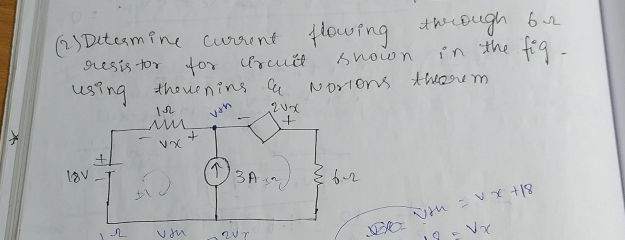 (2) Determine current flowing through 6Ω
resistor for circuit shown in the fig -
using thevenins & Nortons theorem
1Ω Vth - 2Vx +
- Vx +
+
18V - I1 3A I2 6Ω
Vth = Vx + 18
1Ω Vth - 2Vx = Vx